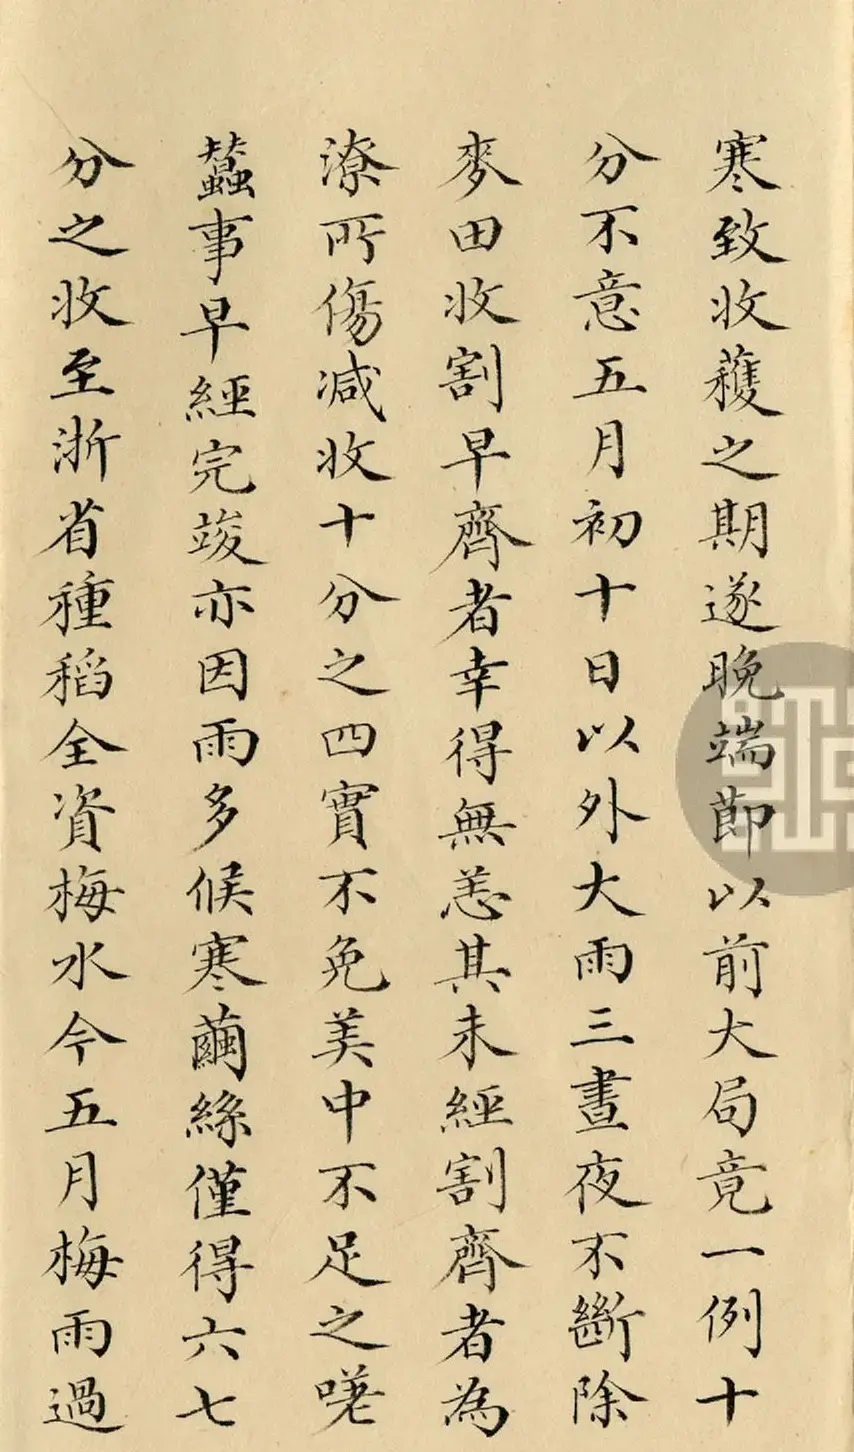 寒致收蘒之期遂晚端節以前大局竟一例十
分不意五月初十日以外大雨三晝夜不斷除
麥田收割早齊者幸得無恙其未經割齊者為
潦所傷減收十分之四實不免美中不足之嘆
蠶事早經完竣亦因雨多候寒繭絲僅得六七
分之收至浙省種稻全資梅水今五月梅雨過